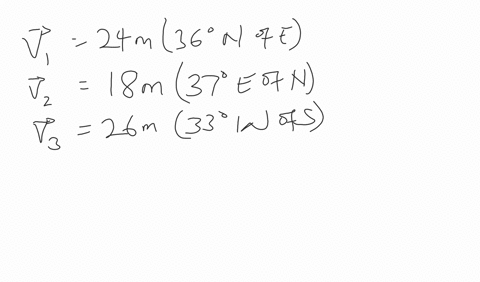 V⃗₁ = 24m (36° N of E)
V⃗₂ = 18m (37° E of N)
V⃗₃ = 26m (33° W of S)